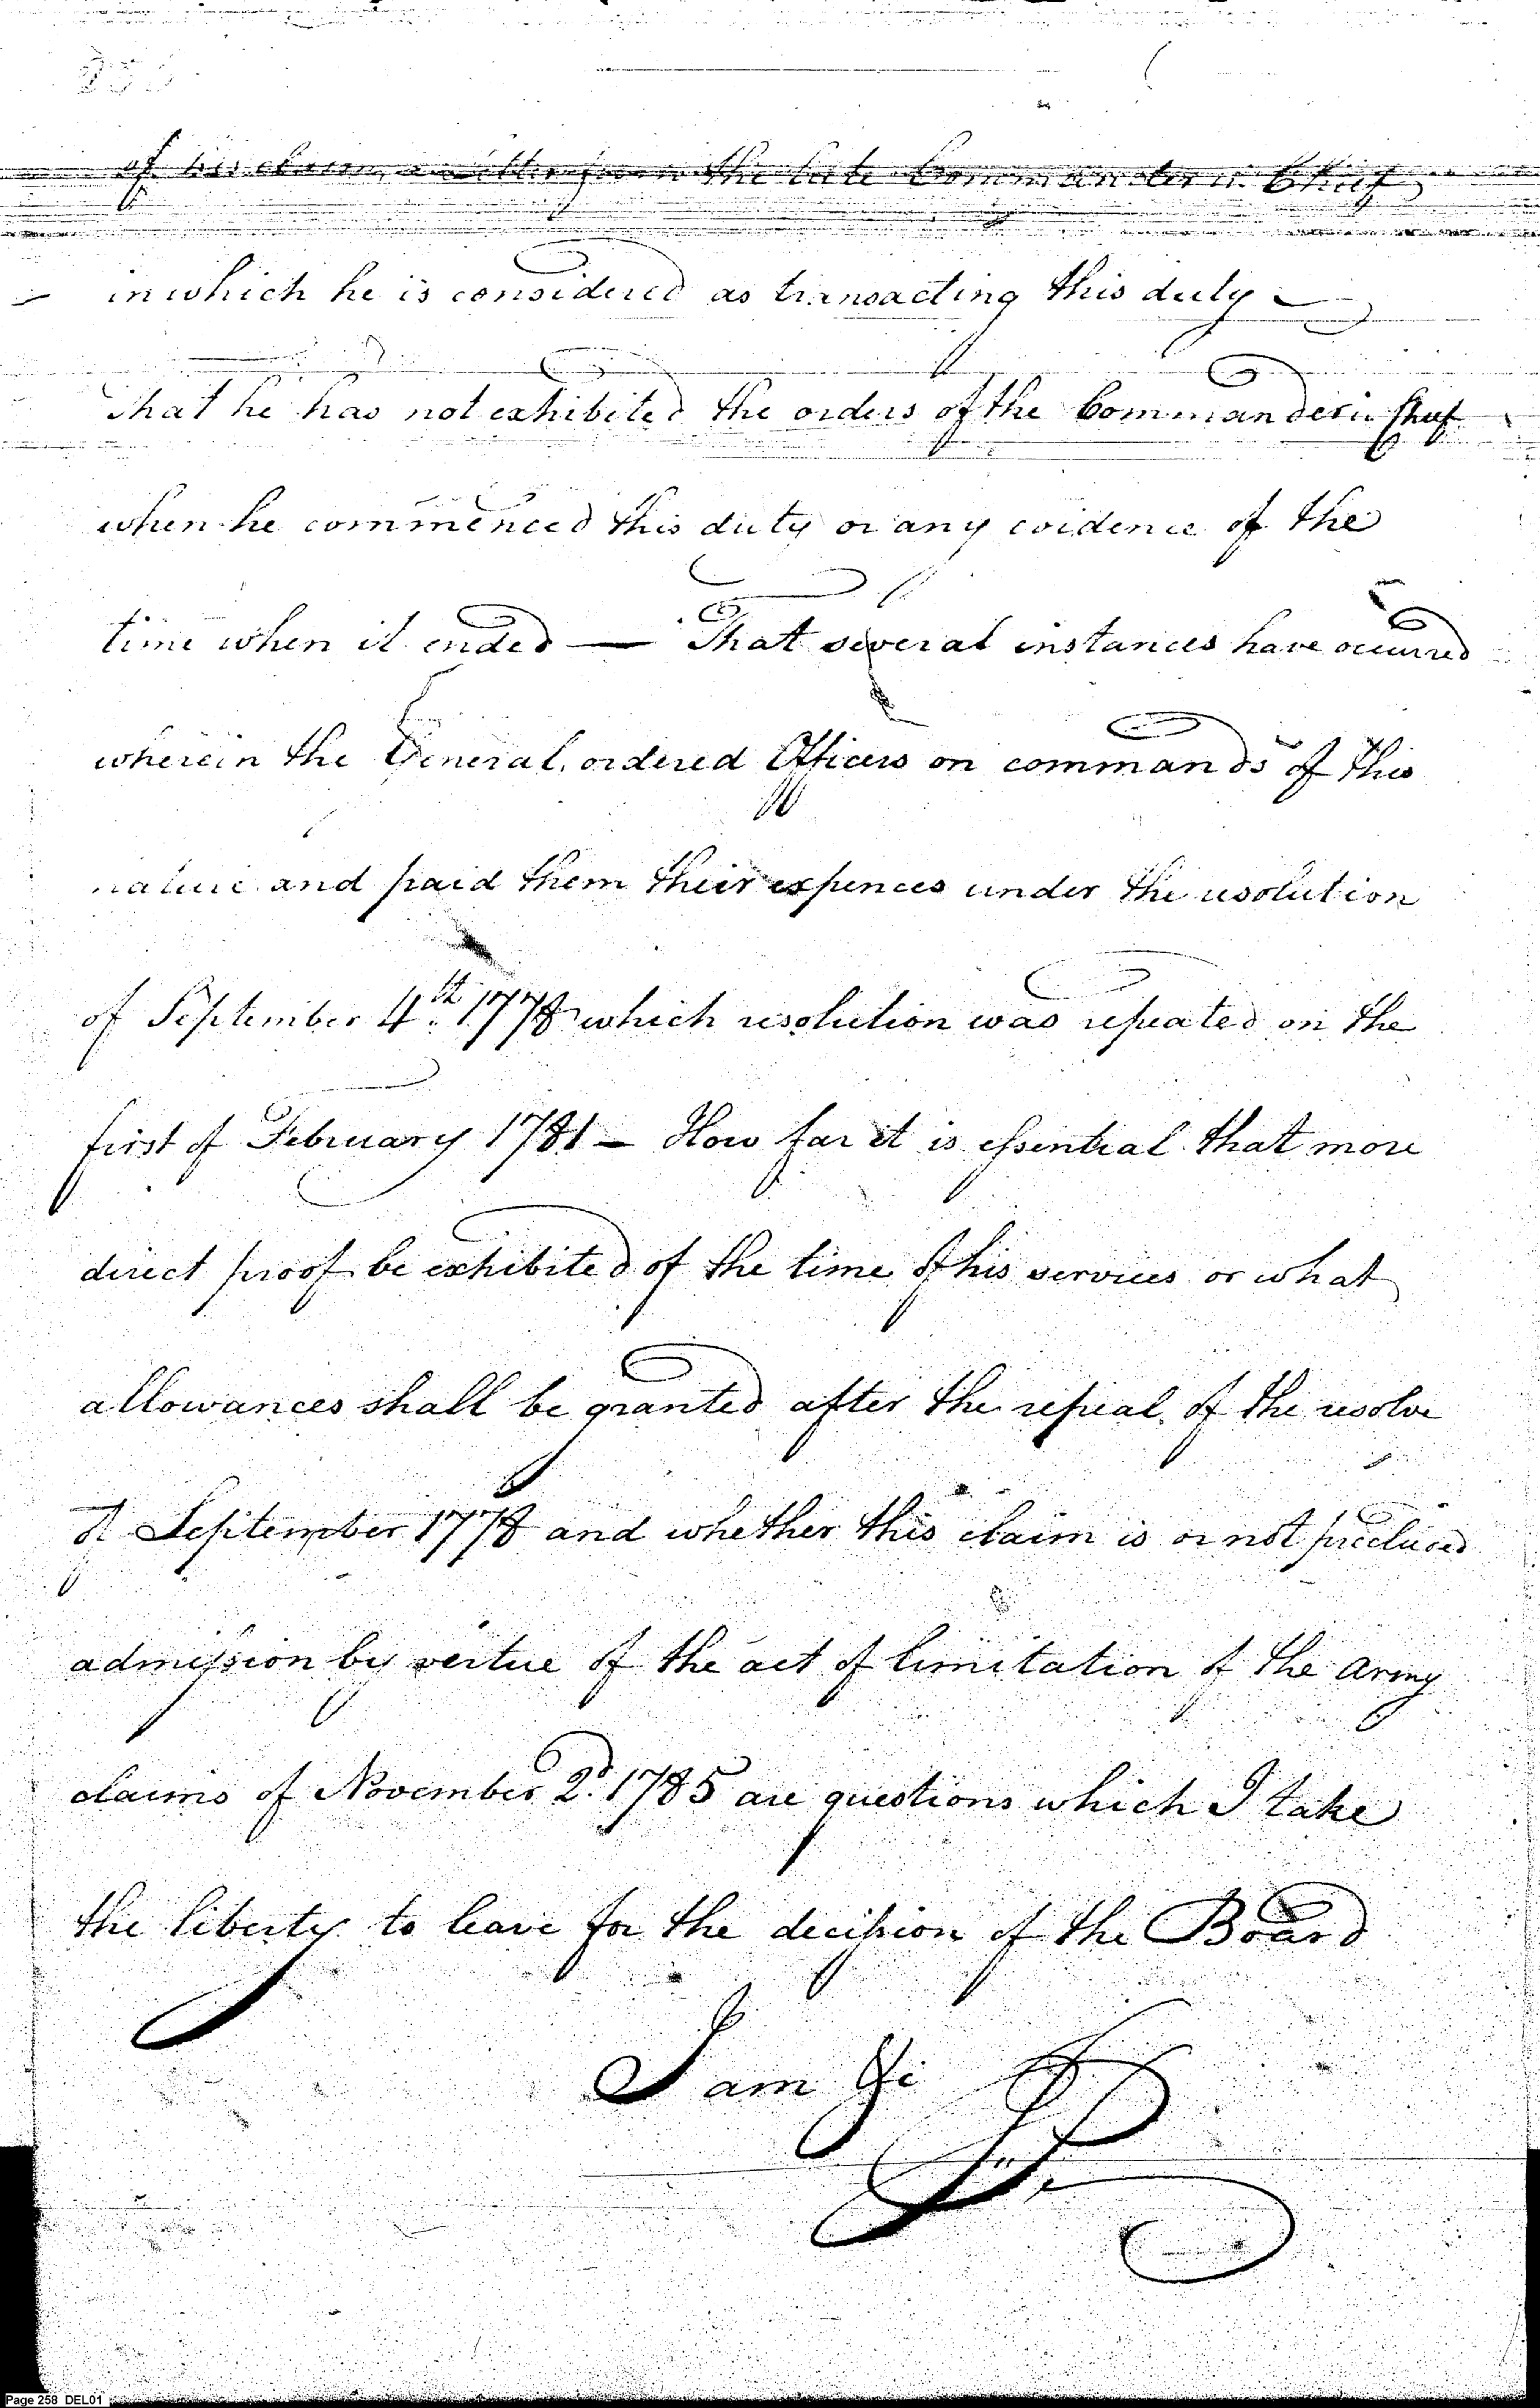 of his claim, a letter from the late Commander in Chief
in which he is considered as transacting this duty –
That he has not exhibited the orders of the Commander in Cheif
when he commenced this duty or any evidence of the
time when it ended — That several instances have occurred
wherein the General, ordered Officers on commands of this
nature and paid them their expences under the resolution
of September 4th. 1778 which resolution was repeated on the
first of February 1781 – How far it is essential that more
direct proof be exhibited of the time of his services or what
allowances shall be granted after the repeal of the resolve
of September 1778 and whether this claim is or not precluded
admission by vertue of the act of limitation of the Army
claims of November 2d. 1785 are questions which I take
the liberty to leave for the decision of the Board
I am &c
Page 258 DEL01